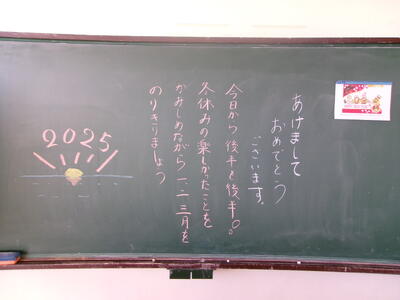 あけまして
おめでとう
ございます。
今日から後半と後半。
冬休みの楽しかったことを
かみしめながら一、二三月を
のりきりましょう
2025